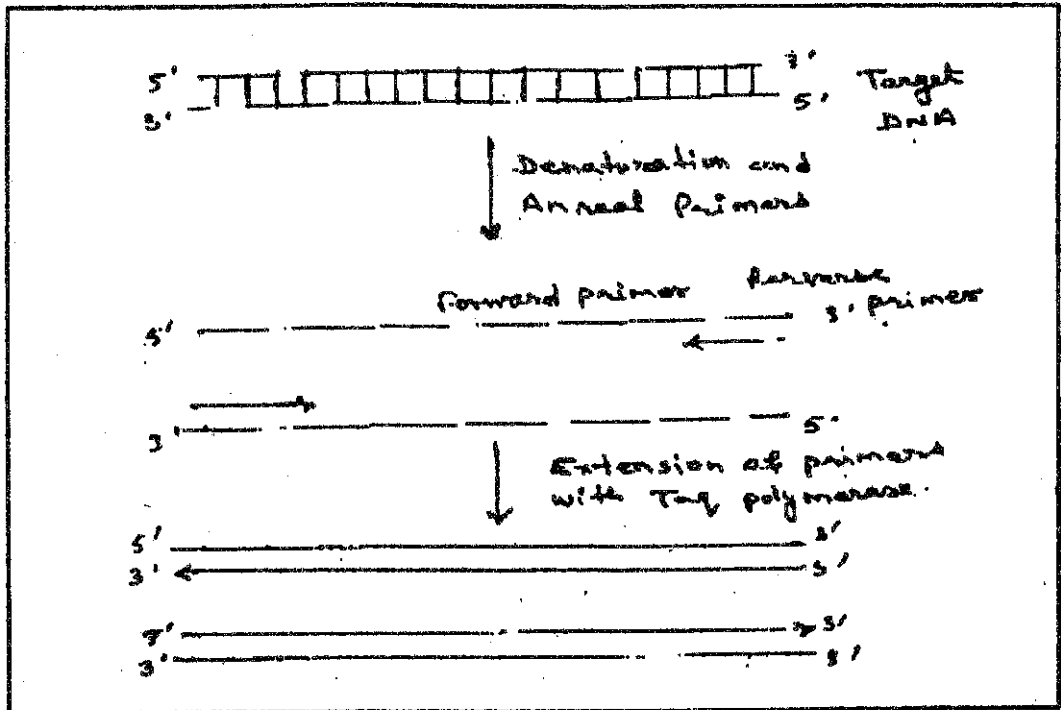 5' 3' Target
3' 5' DNA
Denaturation and
Anneal Primers
Forward primer Reverse
5' 3' primer
3' 5'
Extension of primers
with Taq polymerase.
5' 3'
3' 5'
5' 3'
3' 5'